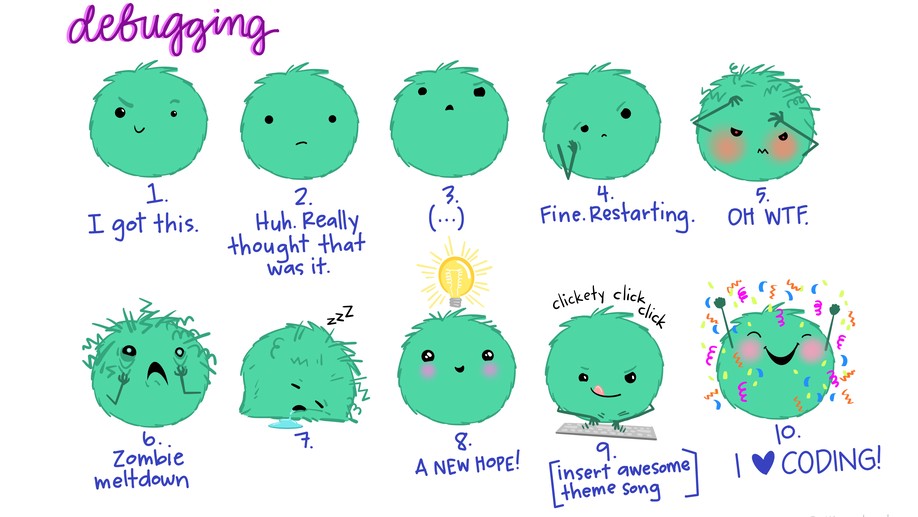 debugging
1.
I got this.
2.
Huh. Really
thought that
was it.
3.
(...)
4.
Fine. Restarting.
5.
OH WTF.
6.
Zombie
meltdown
zzZ
7.
8.
A NEW HOPE!
clickety click
click
9.
[insert awesome
theme song]
10.
I ♥ CODING!